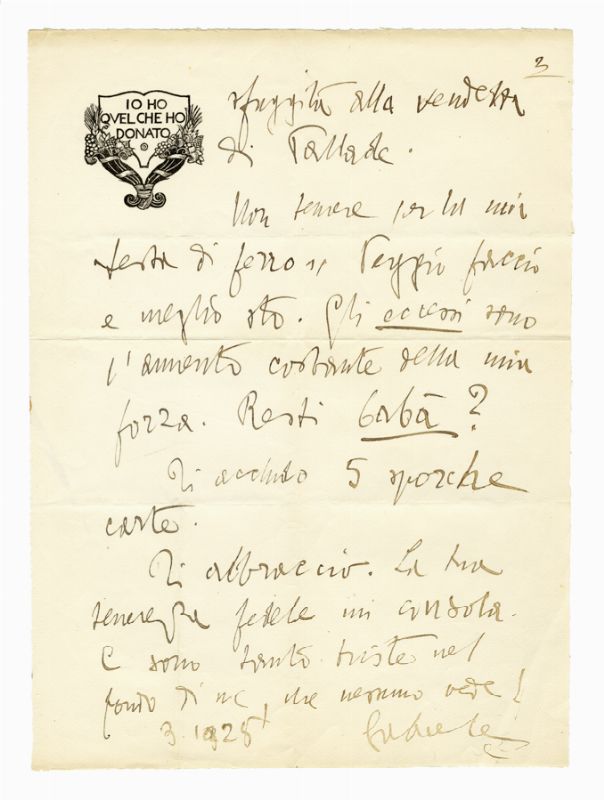 3
IO HO
QVEL CHE HO
DONATO
sfuggita alla vendetta
di Pallade.
Non temere per la mia
testa di ferro. Peggio faccio
e meglio sto. Gli eccessi sono
l'aumento costante della mia
forza. Resti
Ti acchiudo 5 sporche
carte.
Ti abbraccio. La tua
tenerezza fedele mi consola.
E sono tanto triste nel
fondo di me, che nessuno vede!
3. 1928
Gabriele